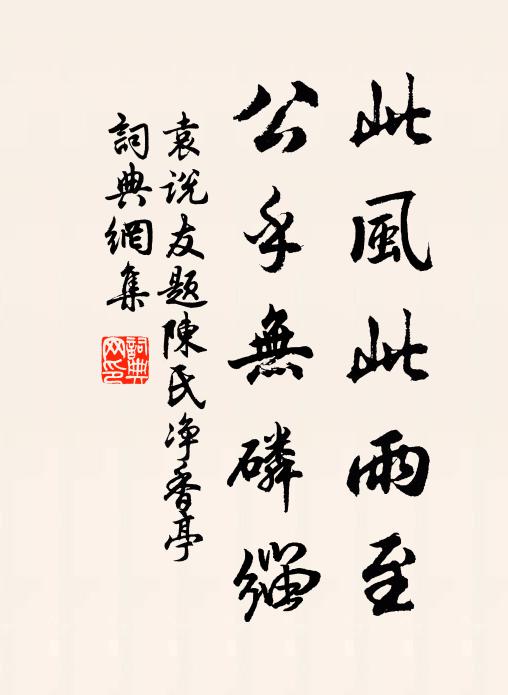 此風此雨至
公乎無磷緇
袁说友题陳氏净香亭
詞典網集
詞典網印